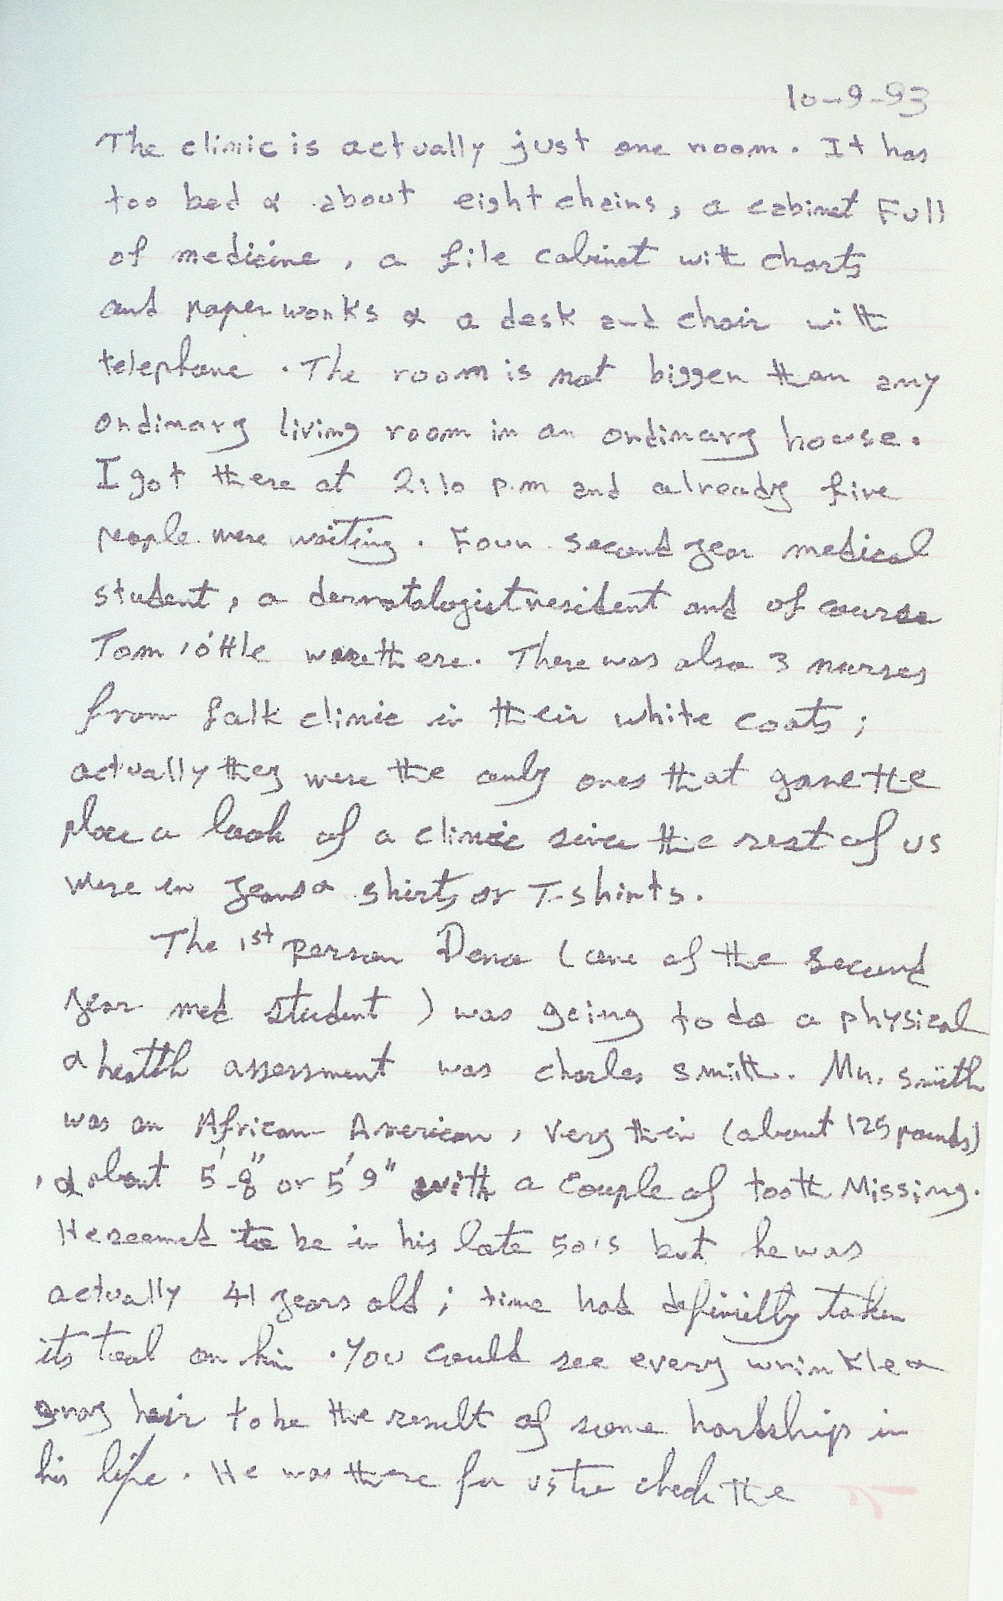 10-9-93
The clinic is actually just one room. It has
too bed & about eight chairs, a cabinet Full
of medicine, a file cabinet with charts
and paper works & a desk and chair with
telephone. The room is not bigger than any
ordinary living room in an ordinary house.
I got there at 2:10 p.m and already five
people were waiting. Four second year medical
student, a dermatologist resident and of course
Tom were there. There was also 3 nurses
from falk clinic in their white coats;
actually they were the only ones that gave the
place a look of a clinic since the rest of us
were in jeans & shirts or T-shirts.
The 1st person Dena (one of the second
year med student) was going to do a physical
& health assessment was charles smith. Mr. smith
was an African American, very thin (about 125 pounds)
, & about 5'-8" or 5'9" with a couple of tooth Missing.
He seemed to be in his late 50's but he was
actually 41 years old; time had definitly taken
its toal on him. You could see every wrinkle &
gray hair to be the result of some hardship in
his life. He was there for us to check the